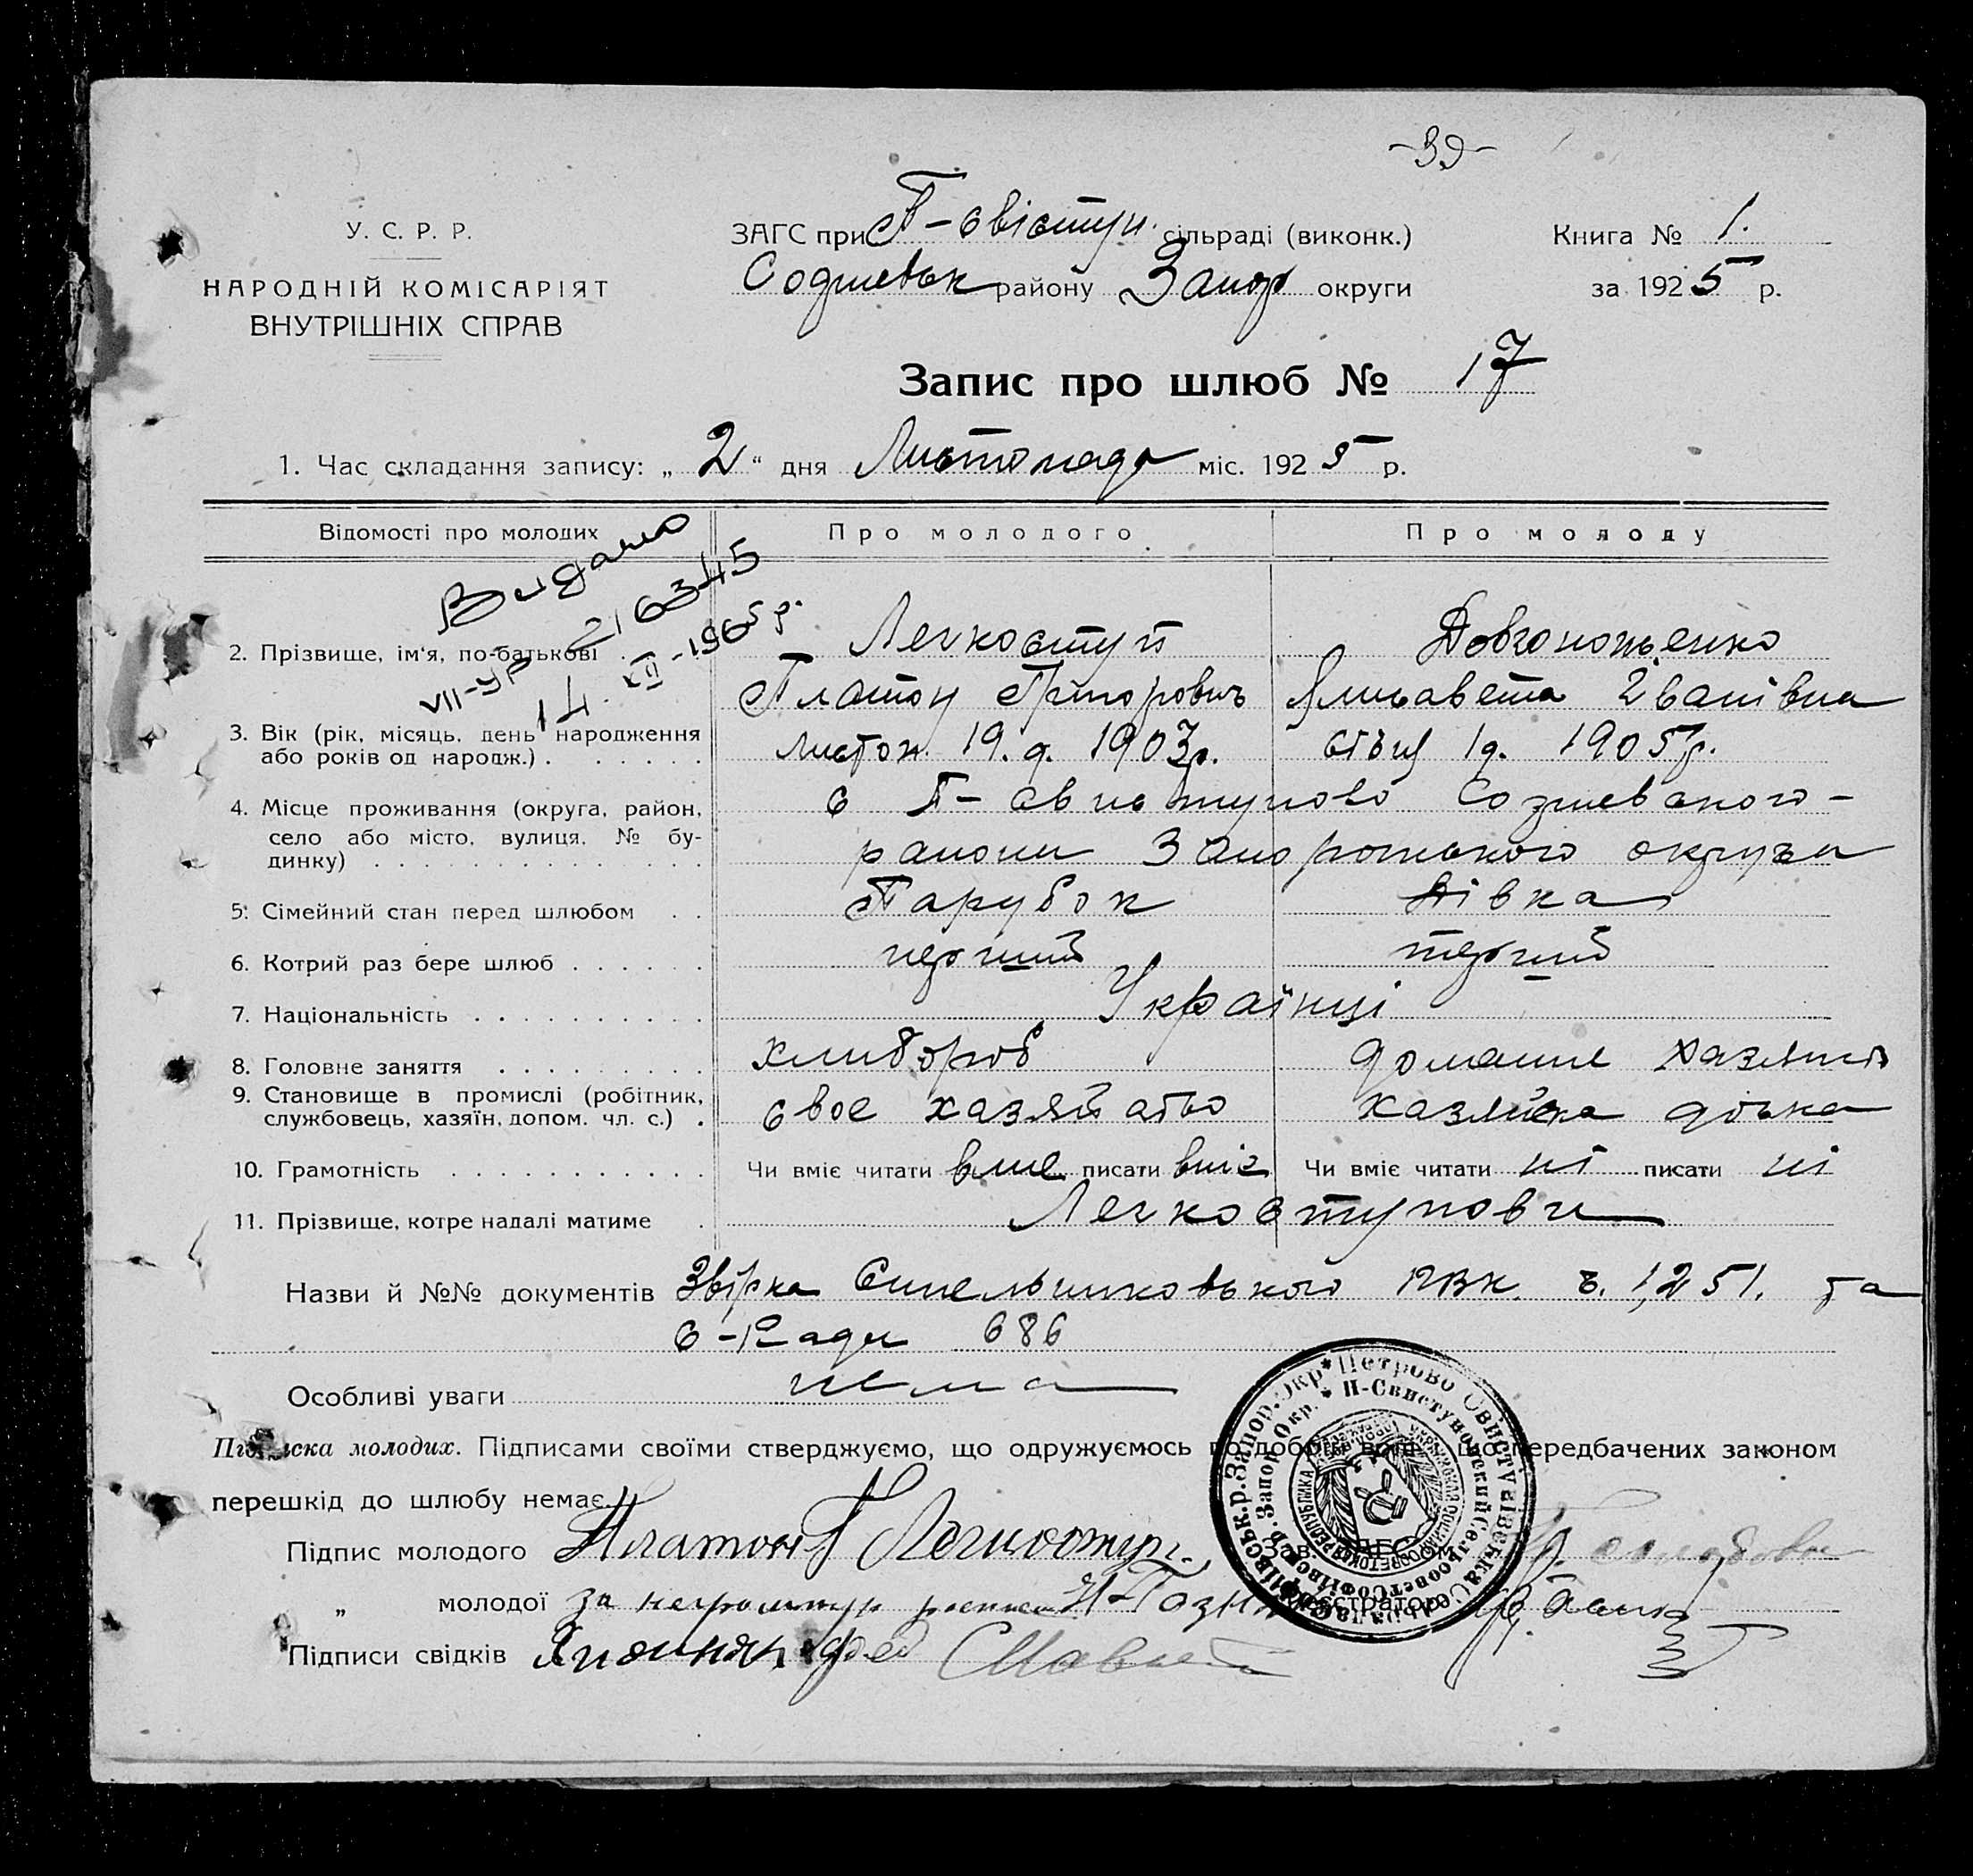 -39-
У. С. Р. Р.
НАРОДНІЙ КОМІСАРІЯТ
ВНУТРІШНІХ СПРАВ
ЗАГС при П-свістун. сільраді (виконк.)
району Запор округи
Книга № 1.
за 1925 р.
Запис про шлюб № 17
1. Час складання запису: „ 2 “ дня Листопада міс. 1925 р.
Відомості про молодих
Про молодого.
Про молоду
Видано
VII-УР 216345
14. XII-1965р.
2. Прізвище, ім‘я, по-батькові
Легкоступ
Довгоноженко
Платон Григорович
Лисавета Іванівна
3. Вік (рік, місяць, день народження
або років од народж.)
листоп. 19. д. 1903р.
січ 1д. 1905р.
4. Місце проживання (округа, район,
село або місто, вулиця, № бу-
динку)
с П-свистуново
району Запорожського округа
5. Сімейний стан перед шлюбом
Парубок
Дівка
6. Котрий раз бере шлюб
перший
перший
7. Національність
Українці
8. Головне заняття
хлибороб
домашне хазяйст
9. Становище в промислі (робітник,
службовець, хазяїн, допом. чл. с.)
свое хазяйство
хазяйска дочка
10. Грамотність
Чи вміє читати вміе писати вміє
Чи вміє читати ні писати ні
11. Прізвище, котре надалі матиме
Легкоступови
Назви й №№ документів Звірка Синельниковського РВК. ч. 1,251. та
С-Ради 686
Особливі уваги нема
Підписка молодих. Підписами своїми стверджуємо, що одружуємось по добрій волі, що передбачених законом
перешкід до шлюбу немає.
Підпис молодого Платон Г Легкоступ.
„ молодої за неграмотну
Підписи свідків
Зав. ЗАГС'ом
Реєстратор
Петрово Свистунівська
П-Свистуновский Сельсовет Софиевск. р. Запор. Окр.